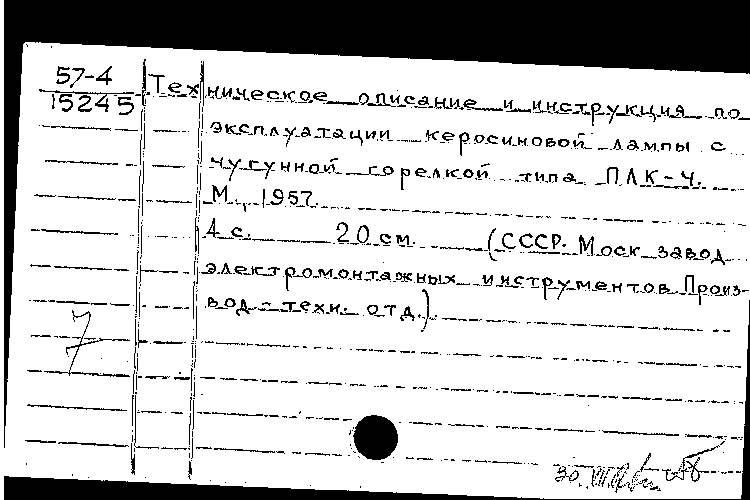 57-4
15245
Техническое описание и инструкция по
эксплуатации керосиновой лампы с
чугунной горелкой типа ПЛК-Ч.
М., 1957.
4 с. 20 см. (СССР. Моск завод
электромонтажных инструментов Произ-
вод-техн. отд.).
7
30.